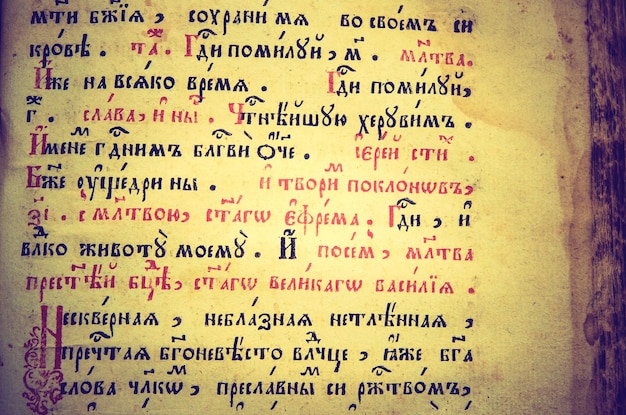 мт҃и бж҃їѧ, сохрани мѧ во своє́мъ си
кро́вѣ. та́ж. Гд҇и поми́лꙋй, м҃. мл҃тва.
И́же на всѧ́ко вре́мѧ. Гд҇и поми́лꙋй,
г҃. сла́ва, и҆ ны́н. Чⷭ҇тнѣ́йшꙋю херꙋви́мъ.
И҆́менемъ гдⷭ҇нимъ бл҃гви́ ѻ҆́ч҃е. і҆ере́й стⷯи.
Бж҃е ᲂу҆ще́дри ны. и҆ твори́м покло́нѡвъ,
з҃і. с мл҃твою, ст҃а́гѡ є҆фре́ма. Гд҇и, и҆
влⷣко животꙋ̀ моемꙋ̀. И҆ посе́м, мл҃тва
прест҃ѣ́й бцⷣѣ, ст҃а́гѡ вели́кагѡ васи́лїѧ.
Нескве́рнаѧ, небла́знаѧ нетлѣ́ннаѧ,
пречⷭ҇таѧ бг҃оневѣ́сто влⷣчце, ꙗ҆́же бг҃а
сло́ва чл҃кѡ́м, пресла́вным си ржⷭ҇тво́мъ,